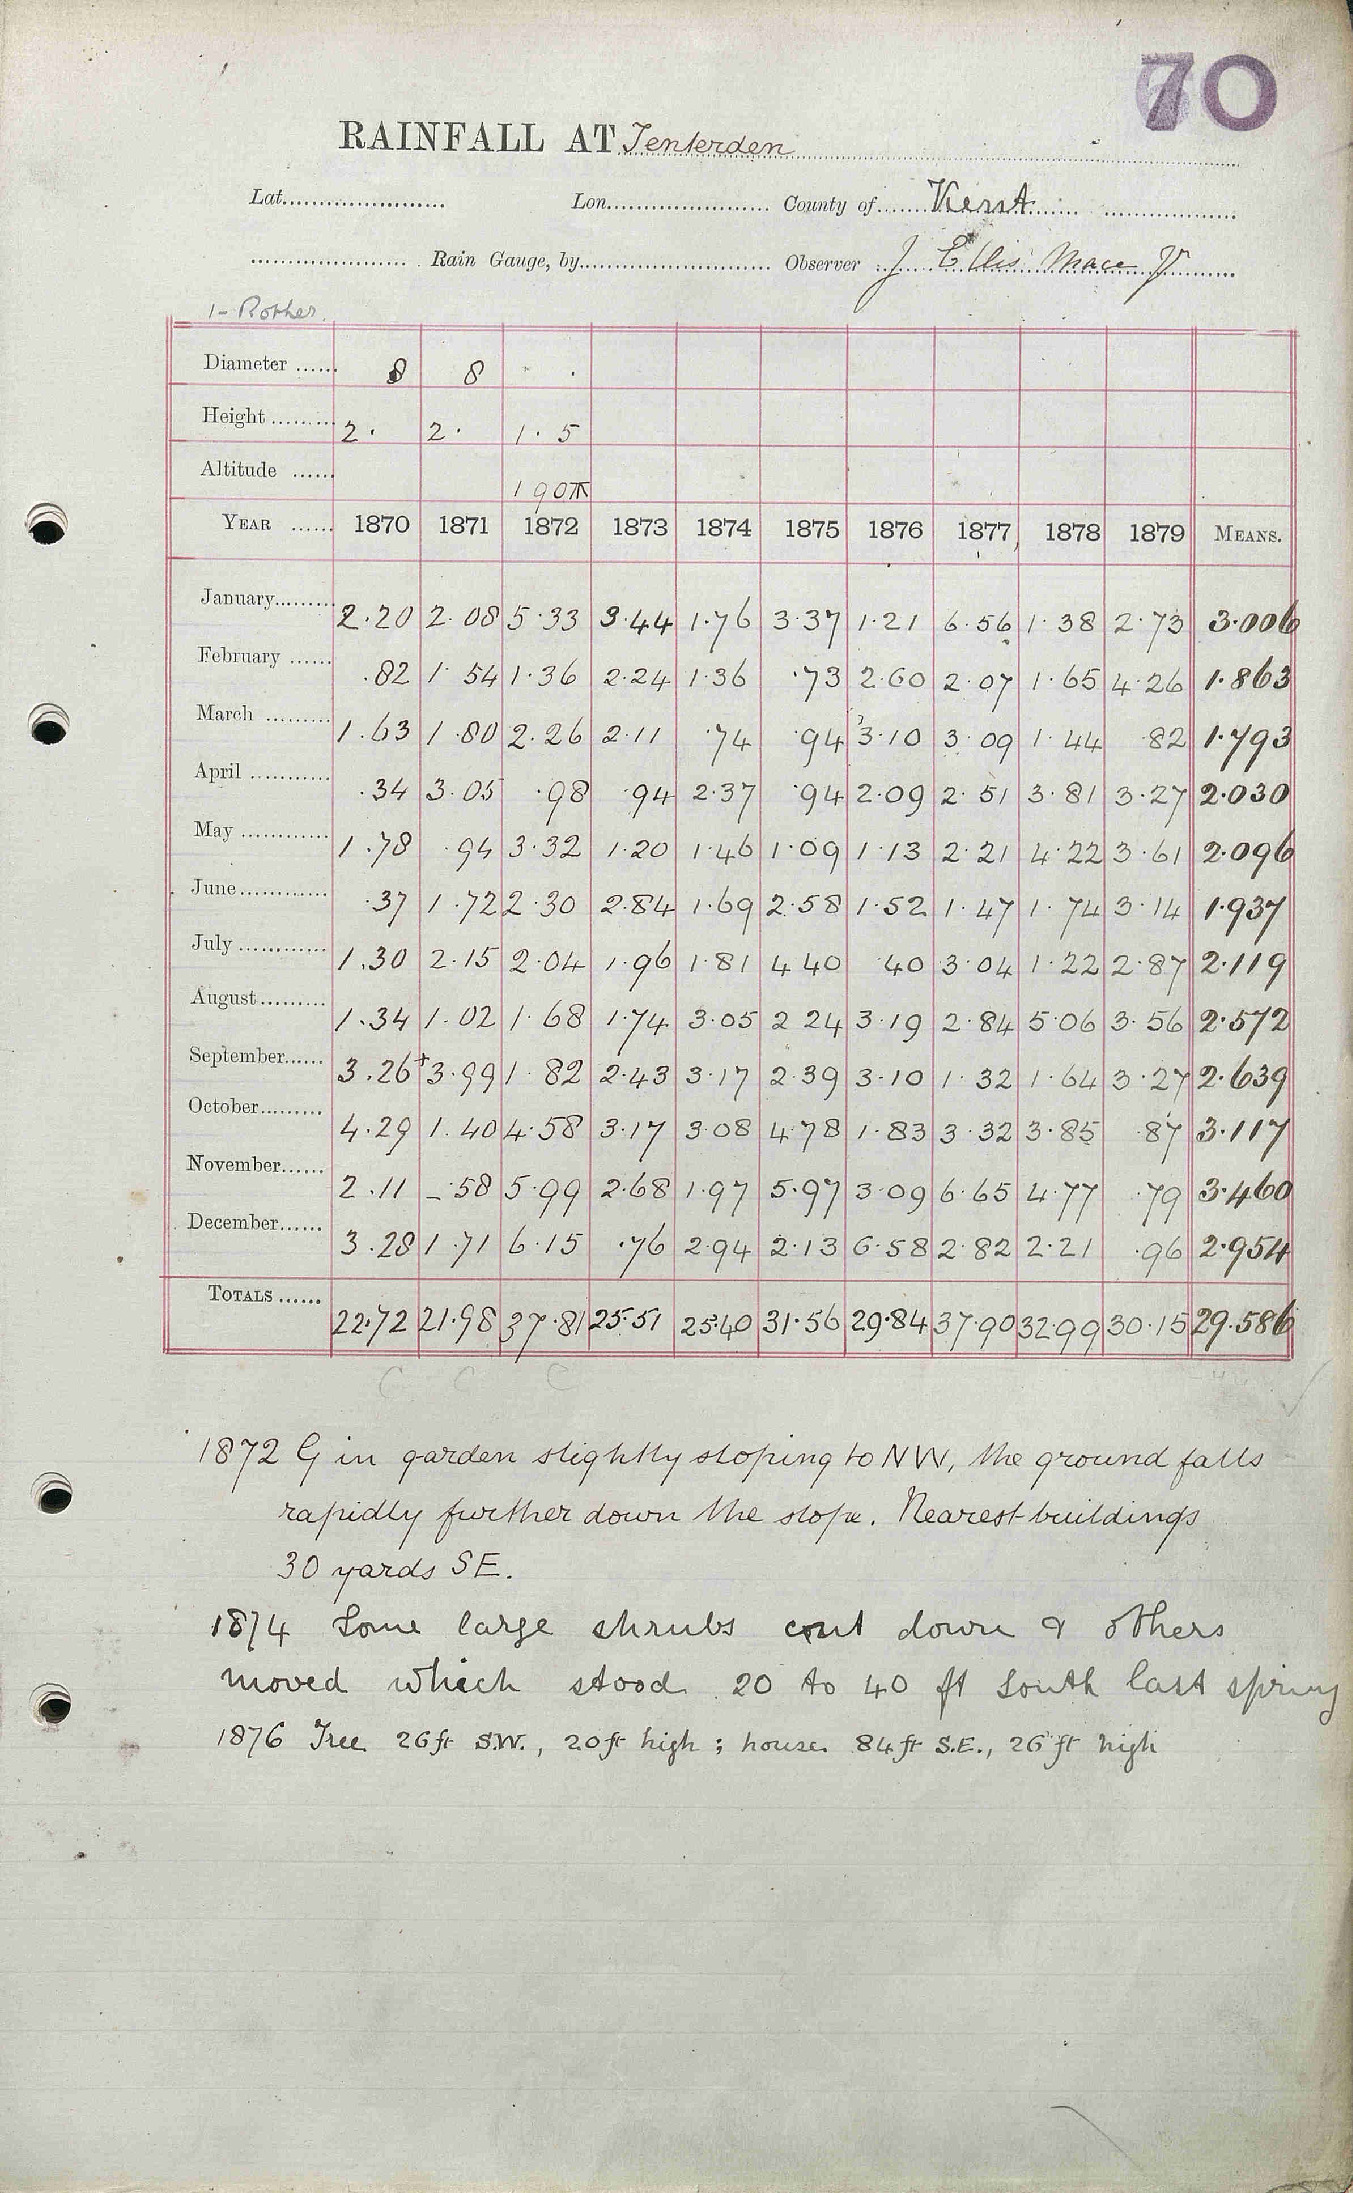 70
RAINFALL AT Tenterden
Lat. Lon. County of Kent
Rain Gauge, by Observer J Ellis Mace Jr
1- Rother
Diameter 8 8
Height 2. 2. 1.5
Altitude 190
YEAR 1870 1871 1872 1873 1874 1875 1876 1877 1878 1879 MEANS.
January 2.20 2.08 5.33 3.44 1.76 3.37 1.21 6.56 1.38 2.73 3.006
February .82 1.54 1.36 2.24 1.36 .73 2.60 2.07 1.65 4.26 1.863
March 1.63 1.80 2.26 2.11 .74 .94 3.10 3.09 1.44 .82 1.793
April .34 3.05 .98 .94 2.37 .94 2.09 2.51 3.81 3.27 2.030
May 1.78 .94 3.32 1.20 1.46 1.09 1.13 2.21 4.22 3.61 2.096
June .37 1.72 2.30 2.84 1.69 2.58 1.52 1.47 1.74 3.14 1.937
July 1.30 2.15 2.04 1.96 1.81 4 40 40 3.04 1.22 2.87 2.119
August 1.34 1.02 1.68 1.74 3.05 2 24 3.19 2.84 5.06 3.56 2.572
September 3.26 +3.99 1.82 2.43 3.17 2.39 3.10 1.32 1.64 3.27 2.639
October 4.29 1.40 4.58 3.17 3.08 4.78 1.83 3.32 3.85 .87 3.117
November 2.11 -.58 5.99 2.68 1.97 5.97 3.09 6.65 4.77 .79 3.460
December 3.28 1.71 6.15 .76 2.94 2.13 6.58 2.82 2.21 .96 2.954
TOTALS 22.72 21.98 37.81 25.51 25.40 31.56 29.84 37.90 32.99 30.15 29.586
C C C
1872 G in garden slightly sloping to NW, the ground falls
rapidly further down the slope. Nearest buildings
30 yards SE.
1874 Some large shrubs cut down & others
moved which stood 20 to 40 ft South last spring
1876 Tree 26 ft S.W., 20 ft high ; house 84 ft S.E., 26 ft high